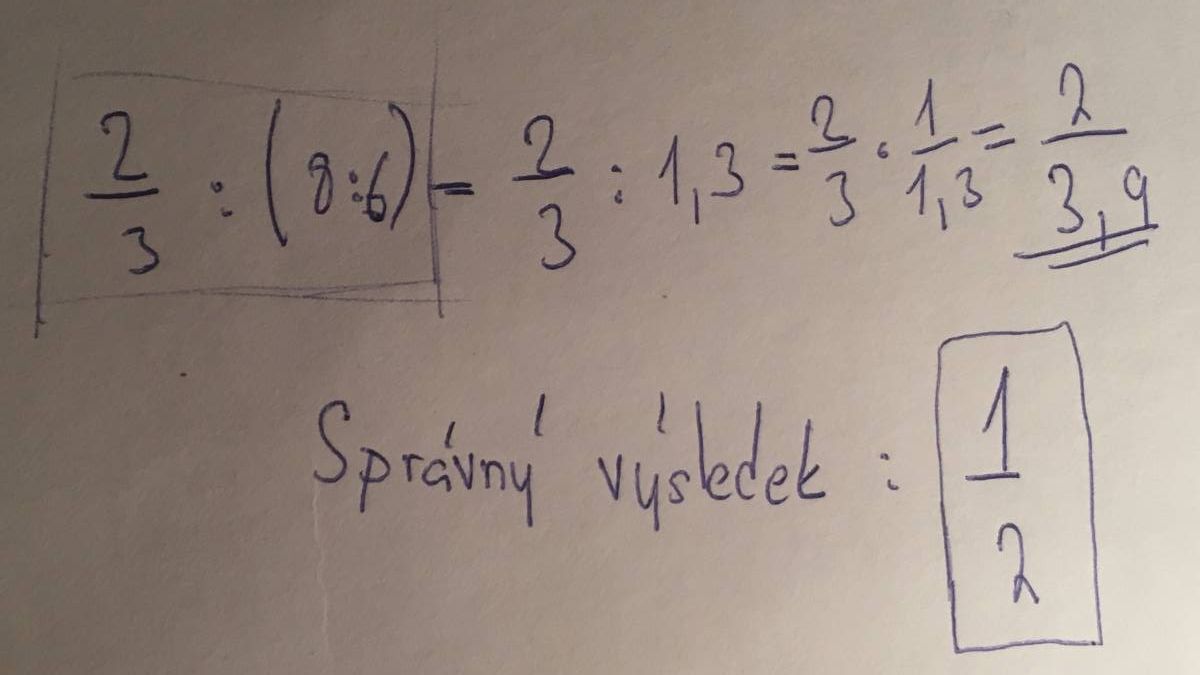 2/3 : (8:6) = 2/3 : 1,3 = 2/3 · 1/1,3 = 2/3,9
Správný výsledek : 1/2